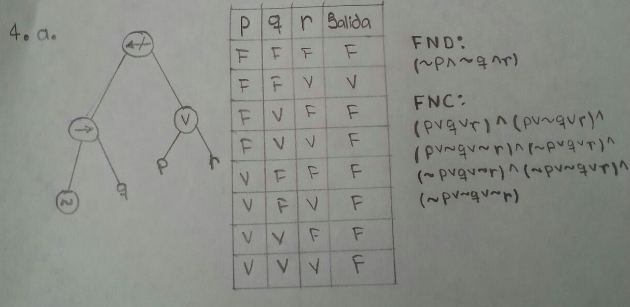 4. a.
↚
→ v
~ q p r
p q r Salida
F F F F
F F V V
F V F F
F V V F
V F F F
V F V F
V V F F
V V V F
FND:
(~p∧~q∧r)
FNC:
(pvqvr)∧(pv~qvr)∧
(pv~qv~r)∧(~pvqvr)∧
(~pvqv~r)∧(~pv~qvr)∧
(~pv~qv~r)